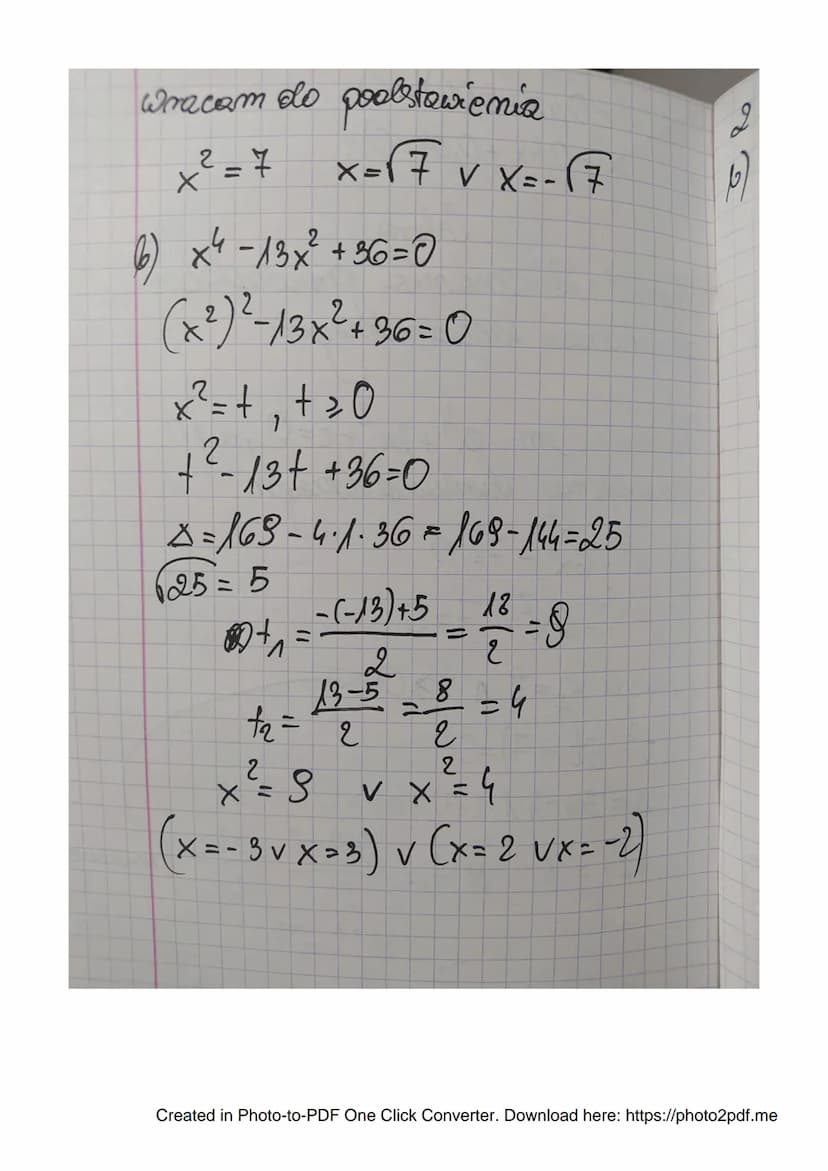 wracam do podstawienia
x² = 7   x = √7 ∨ x = -√7
b) x⁴ - 13x² + 36 = 0
(x²)² - 13x² + 36 = 0
x² = t , t ≥ 0
t² - 13t + 36 = 0
Δ = 169 - 4·1·36 = 169 - 144 = 25
√25 = 5
t₁ = (-(-13)+5)/2 = 18/2 = 9
t₂ = (13-5)/2 = 8/2 = 4
x² = 9 ∨ x² = 4
(x = -3 ∨ x = 3) ∨ (x = 2 ∨ x = -2)
2
b)
Created in Photo-to-PDF One Click Converter. Download here: https://photo2pdf.me